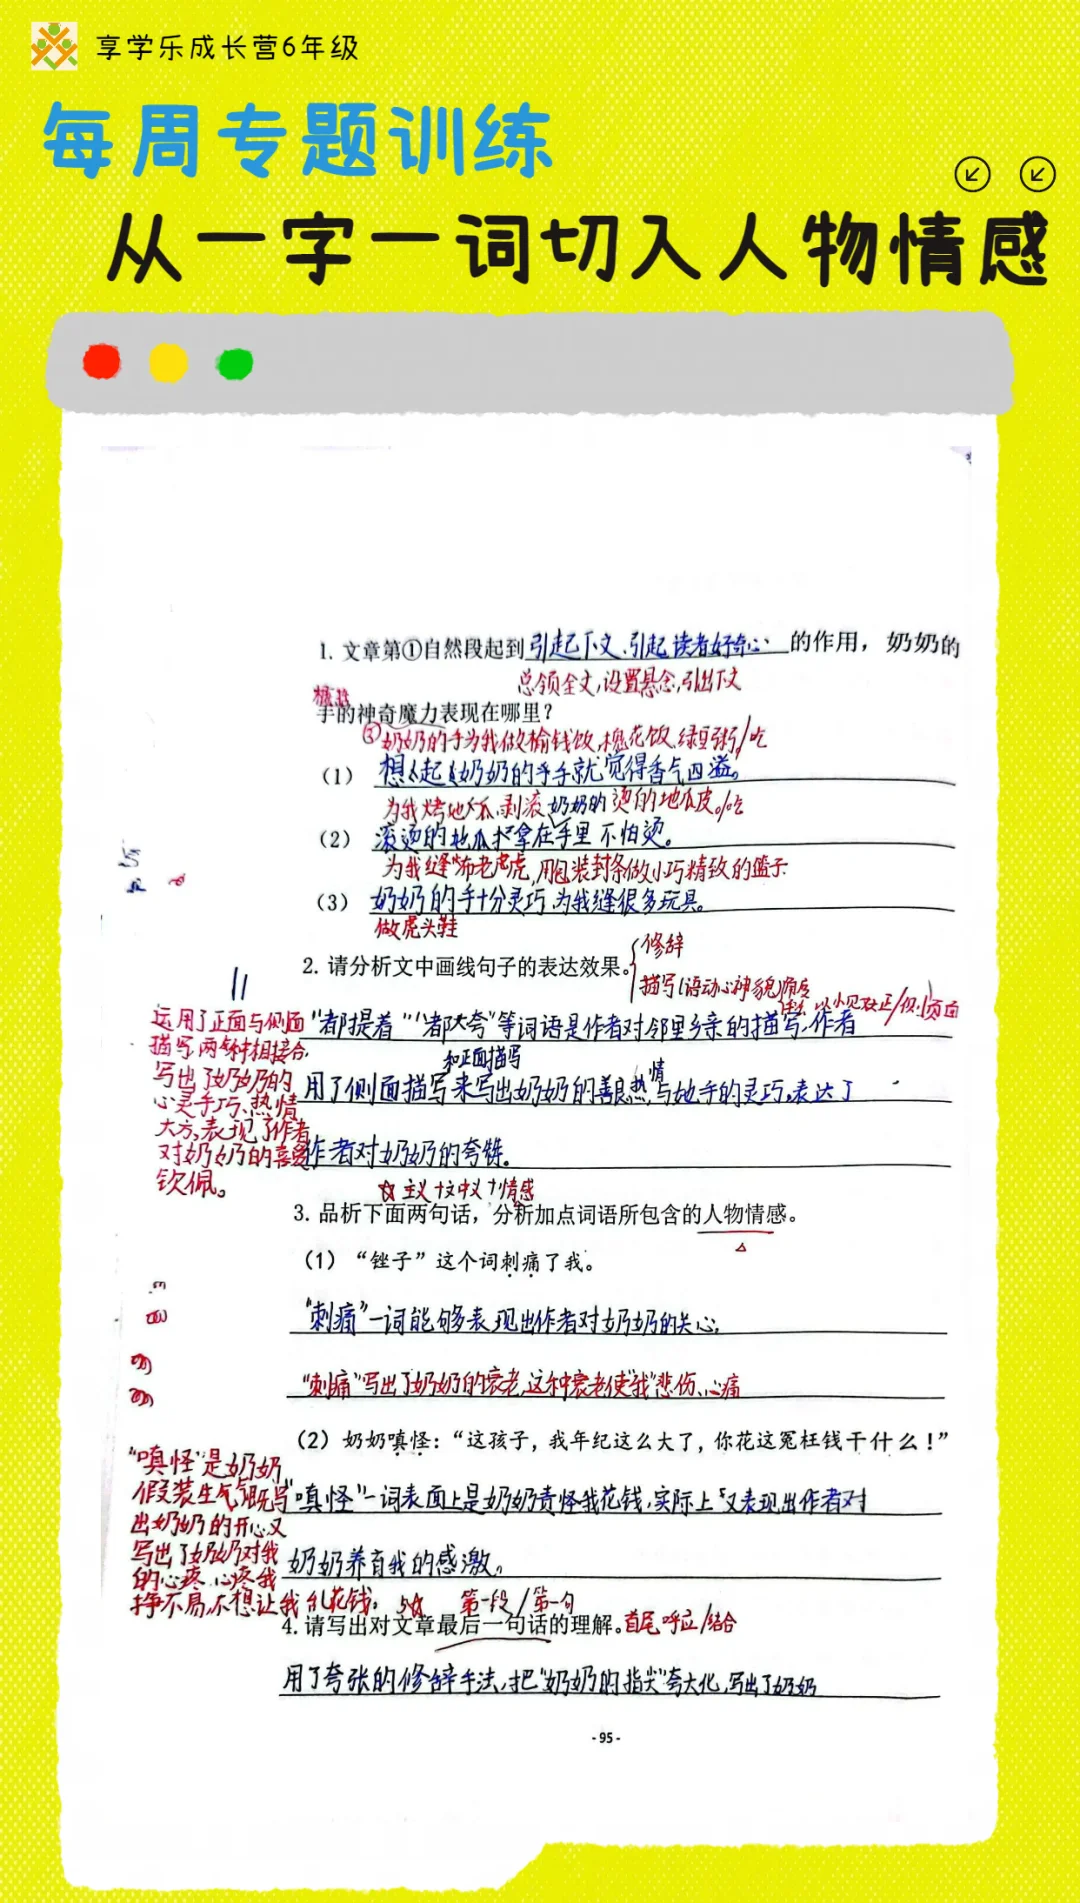 享学乐成长营6年级
每周专题训练
从一字一词切入人物情感
1. 文章第①自然段起到引起下文、引起读者好奇心的作用，奶奶的
总领全文,设置悬念,引出下文
手的神奇魔力表现在哪里？
奶奶的手为我做榆钱饭,槐花饭,绿豆粥/吃
（1）想起奶奶的手就觉得香气四溢。
为我烤地瓜、剥滚烫的地瓜皮。/吃
（2）滚烫的地瓜拿在手里不怕烫。
为我缝布老虎,用包装封条做小巧精致的篮子
（3）奶奶的手十分灵巧,为我缝很多玩具。
做虎头鞋
2. 请分析文中画线句子的表达效果。
修辞
描写(语动心神貌)角度
以小见大 正/侧面
"都提着""都大夸"等词语是作者对邻里乡亲的描写,作者
和正面描写
用了侧面描写来写出奶奶的善良,热情与她手的灵巧,表达了
作者对奶奶的夸赞。
运用了正面与侧面
描写,两种相接合,
写出了奶奶的
心灵手巧、热情
大方,表现了作者
对奶奶的喜爱
钦佩。
☆主义+文中义+情感
3. 品析下面两句话，分析加点词语所包含的人物情感。
（1）“锉子”这个词刺痛了我。
"刺痛"一词能够表现出作者对奶奶的关心,
"刺痛"写出了奶奶的衰老,这种衰老使"我"悲伤、心痛
（2）奶奶嗔怪：“这孩子，我年纪这么大了，你花这冤枉钱干什么！”
"嗔怪"一词表面上是奶奶责怪我花钱,实际上又表现出作者对
奶奶养育我的感激。
"嗔怪"是奶奶
假装生气,既写
出奶奶的开心又
写出了奶奶对我
的心疼,心疼我
挣不易,不想让我乱花钱。
第一段/第一句
4. 请写出对文章最后一句话的理解。
首尾呼应/结合
用了夸张的修辞手法,把"奶奶的指尖"夸大化,写出了奶奶
- 95 -